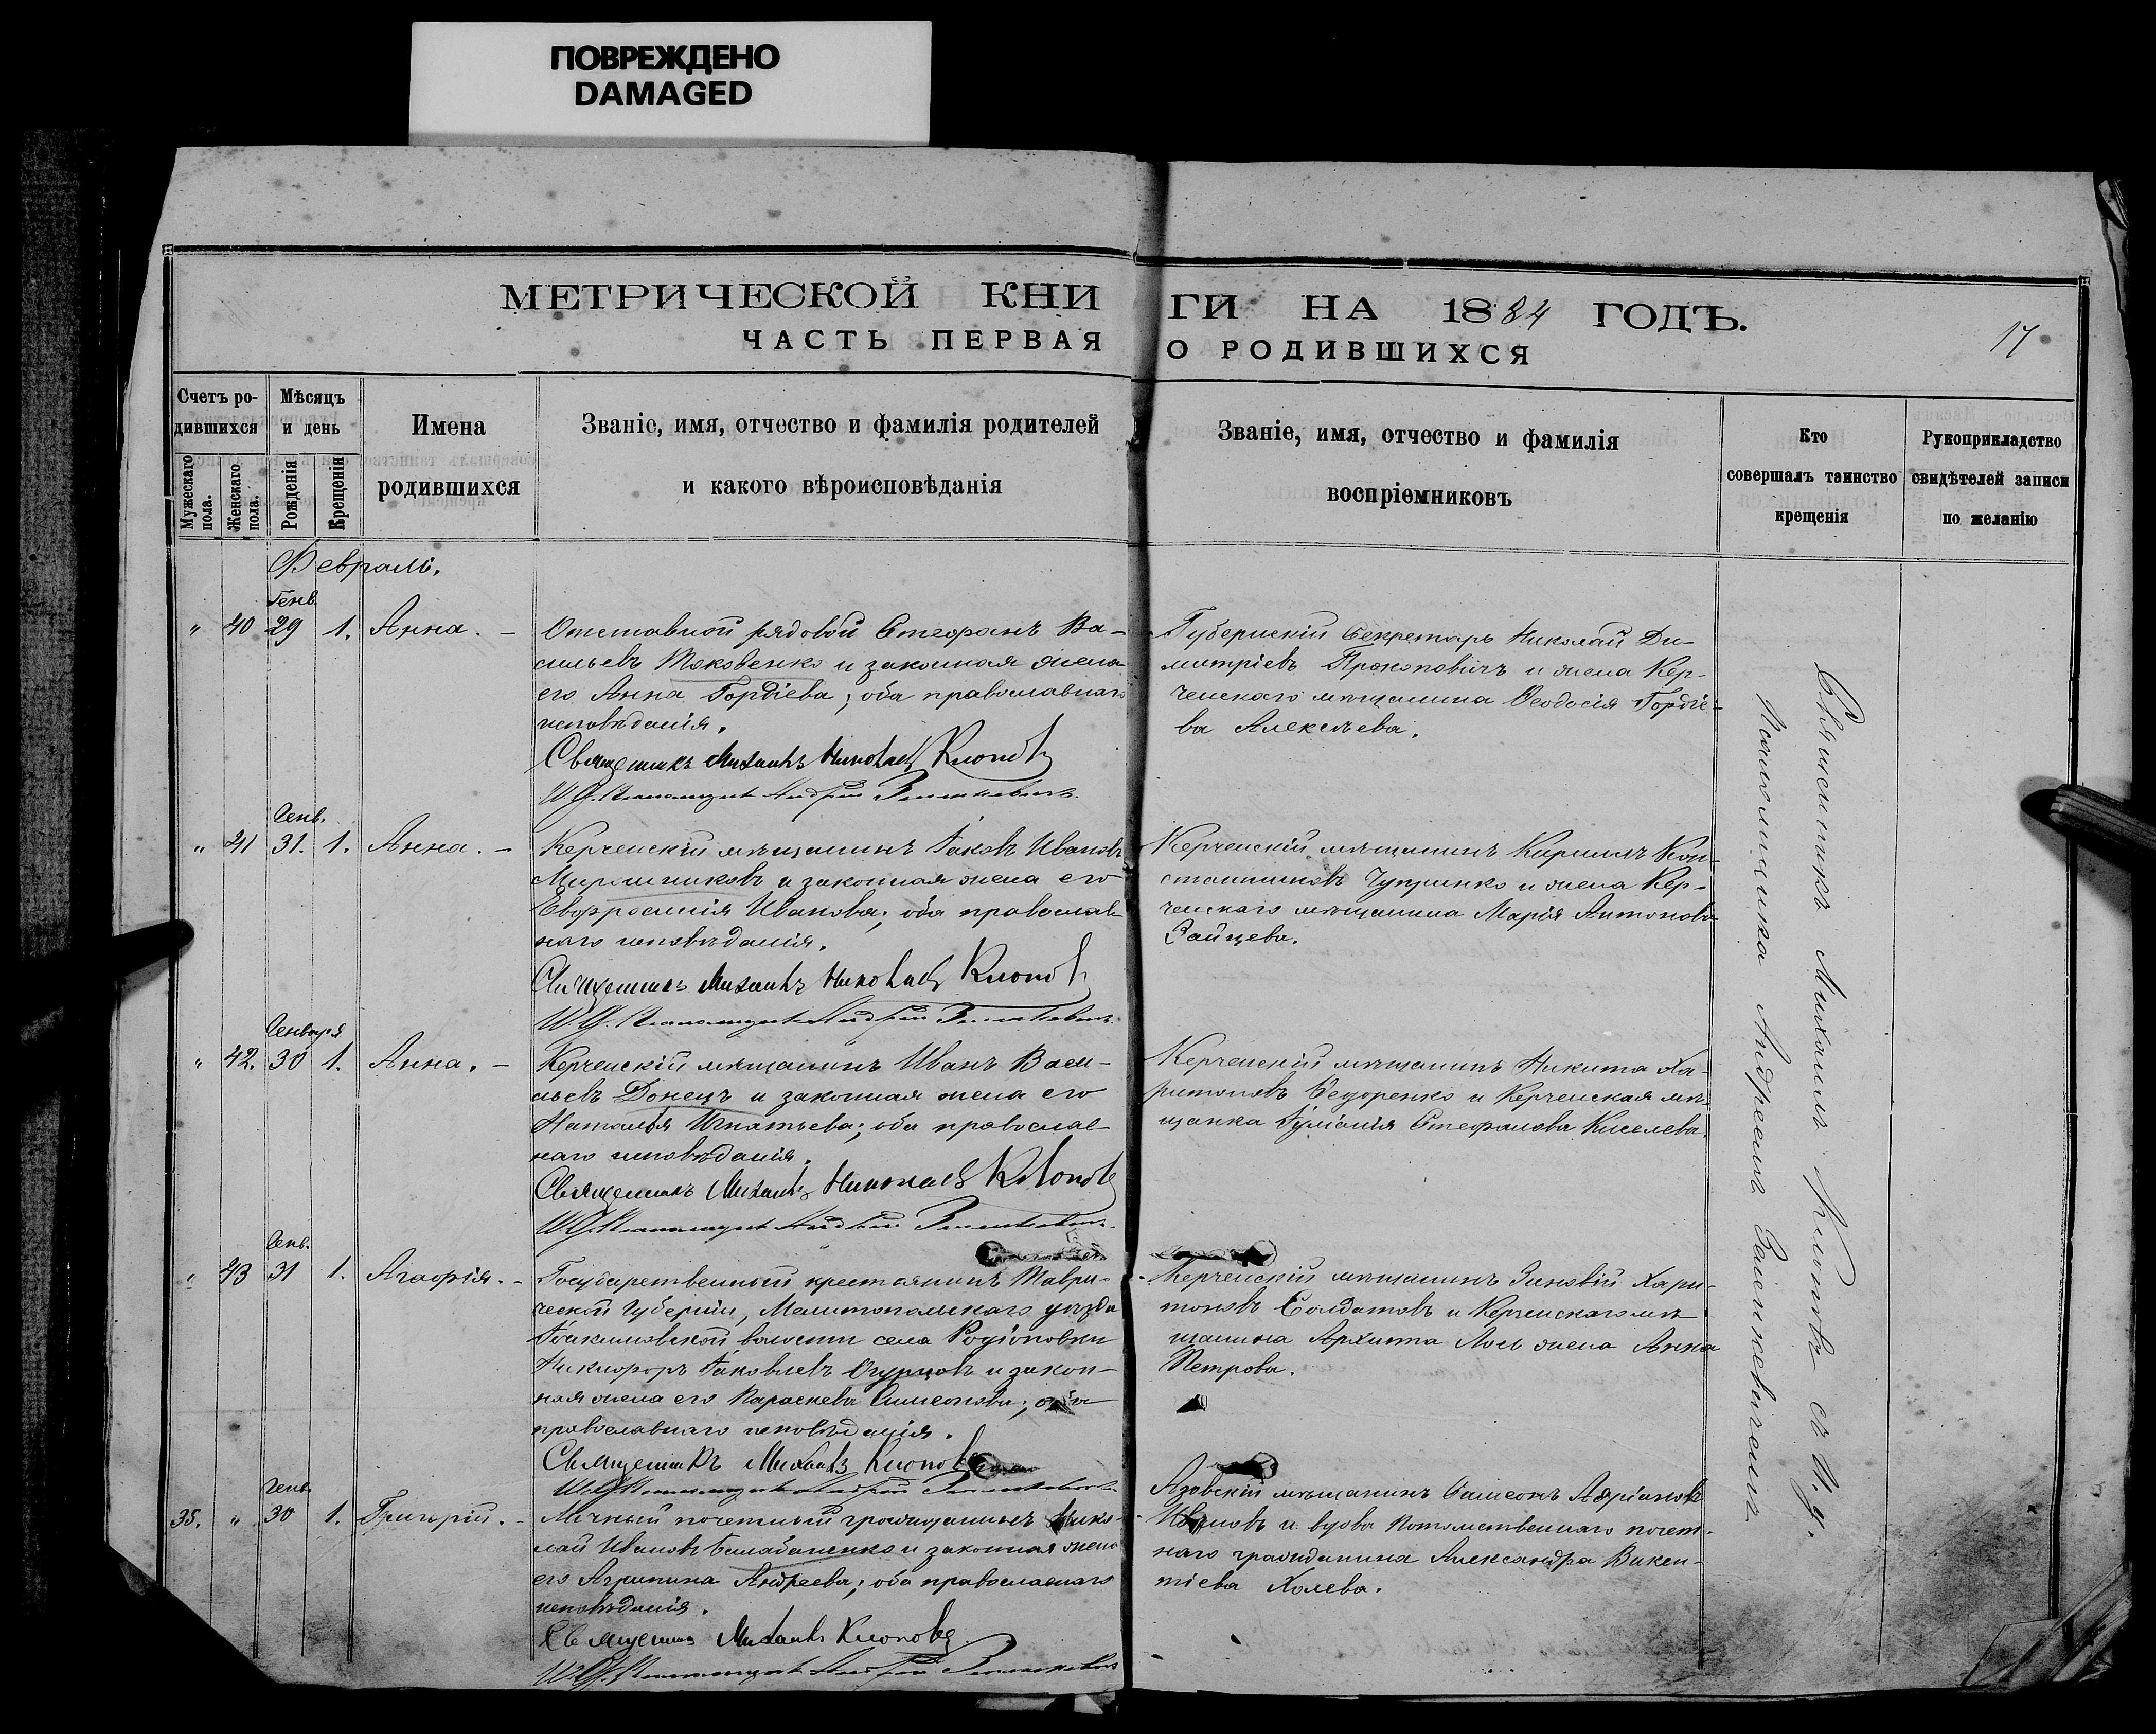 ПОВРЕЖДЕНО
DAMAGED
МЕТРИЧЕСКОЙ КНИ ГИ НА 1884 ГОДЪ.
ЧАСТЬ ПЕРВАЯ О РОДИВШИХСЯ
17
Счетъ ро-
дившихся
Мужескаго пола.
Женскаго пола.
Мѣсяцъ
и день
Рожденія
Крещенія
Имена
родившихся
Званіе, имя, отчество и фамилія родителей
и какого вѣроисповѣданія
Званіе, имя, отчество и фамилія
воспріемниковъ
Кто
совершалъ таинство
крещенія
Рукоприкладство
свидѣтелей записи
по желанію
Февраль.
Генв.
" 40 29 1. Анна. –
Отставной рядовой Стефанъ Ва-
сильевъ Яковенко и законная жена
его Анна Гордіева; оба православнаго
исповѣданія.
Священникъ Михаилъ Николаевъ Клоповъ
И. Д. Псаломщика Андрей
Губернскій Секретарь Николай Ди-
митріевъ Прокоповичъ и жена Кер-
ченскаго мѣщанина Ѳеодосія Гордіе-
ва Алексѣева.
Генв.
" 41 31. 1. Анна. –
Керченскій мѣщанинъ Іаковъ Ивановъ
Мирошниковъ и законная жена его
Евфросинія Иванова; оба православ-
наго исповѣданія.
Священникъ Михаилъ Николаевъ Клоповъ
И. Д. Псаломщика Андрей
Керченскій мѣщанинъ Кириллъ Кон-
стантиновъ Чупринко и жена Кер-
ченскаго мѣщанина Марія Антонова
Зайцева.
Генваря
" 42. 30 1. Анна. –
Керченскій мѣщанинъ Иванъ Васи-
льевъ Донецъ и законная жена его
Наталья Игнатьева; оба православ-
наго исповѣданія.
Священникъ Михаилъ Николаевъ Клоповъ
И. Д. Псаломщика Андрей
Керченскій мѣщанинъ Никита Ха-
ритоновъ Ѳедоренко и Керченская мѣ-
щанка Іуліанія Стефанова Киселева.
Генв.
" 43 31 1. Агафія. –
Государственный крестьянинъ Таври-
ческой Губерніи, Мелитопольскаго уѣзда
волости села Родіоновки
Никифоръ Іаковлевъ Огурцовъ и закон-
ная жена его Параскева Симеонова; оба
православнаго исповѣданія.
Священникъ Михаилъ Клоповъ
И. Д. Псаломщика Андрей
Керченскій мѣщанинъ Зиновій Хари-
тоновъ Солдатовъ и Керченскаго мѣ-
щанина Архипа Лось жена Анна
Петрова.
Генв.
35. " 30 1. Григорій. –
Личный почетный гражданинъ Нико-
лай Ивановъ Балабаненко и законная жена
его Агрипина Андреева; оба православнаго
исповѣданія.
Священникъ Михаилъ Клоповъ
И. Д. Псаломщика Андрей
Азовскій мѣщанинъ Симеонъ Адріановъ
Ивановъ и вдова потомственнаго почет-
наго гражданина Александра Викен-
тіева Холева.
Священникъ Михаилъ Клоповъ съ И. д.
Псаломщика Андреемъ